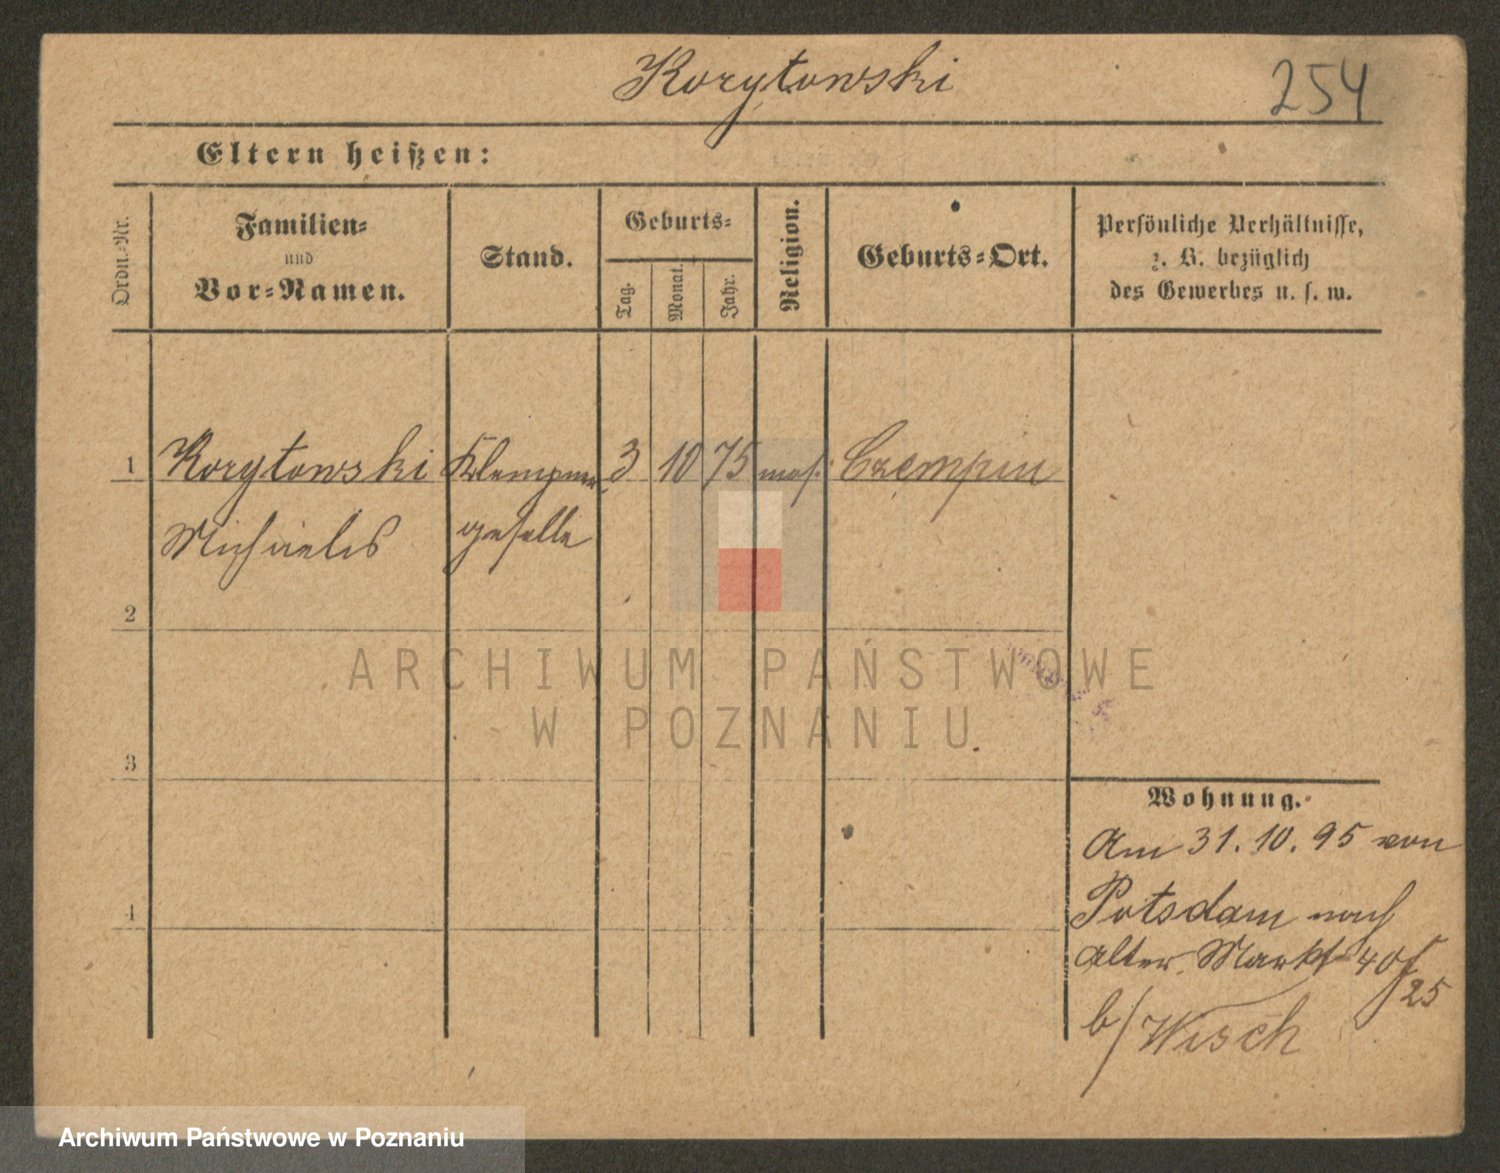 Korytowski
254
Eltern heißen:
Ordn.-Nr.
Familien-
und
Vor-Namen.
Stand.
Geburts-
Tag.
Monat.
Jahr.
Religion.
Geburts-Ort.
Persönliche Verhältnisse,
z. B. bezüglich
des Gewerbes u. s. w.
1 Korytowski Klempner 3 10 75 mos. Czempin
Michaelis geselle
2
3
4
Wohnung.
Am 31. 10. 95 von
Potsdam nach
Alter Markt 40
25
b/ Wisch
ARCHIWUM PAŃSTWOWE
W POZNANIU
Archiwum Państwowe w Poznaniu